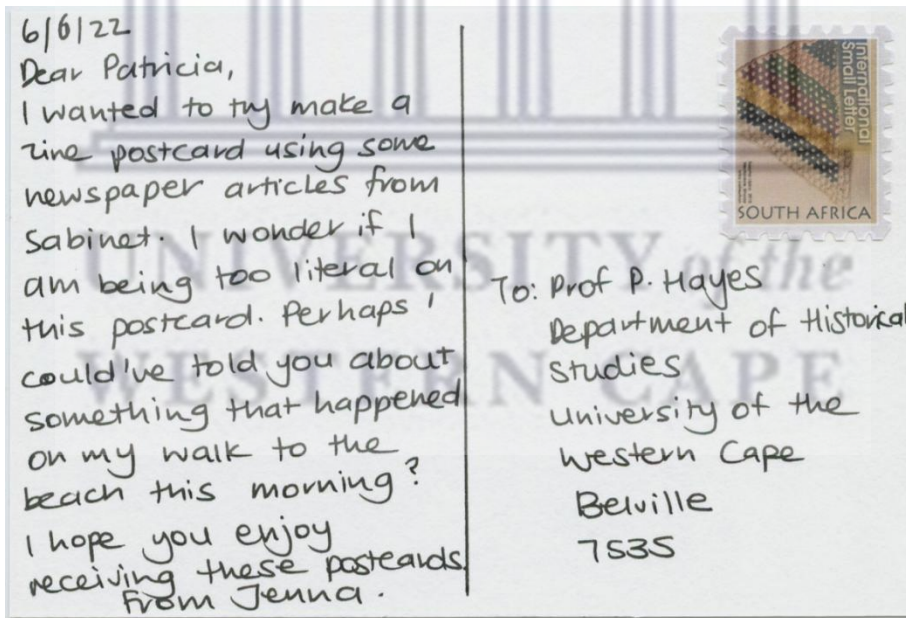 6/6/22
Dear Patricia,
I wanted to try make a
zine postcard using some
newspaper articles from
Sabinet. I wonder if I
am being too literal on
this postcard. Perhaps I
could've told you about
something that happened
on my walk to the
beach this morning?
I hope you enjoy
receiving these postcards.
From Jenna.
International
Small Letter
SOUTH AFRICA
To: Prof P. Hayes
Department of Historical
Studies
University of the
Western Cape
Belville
7535
UNIVERSITY of the
WESTERN CAPE